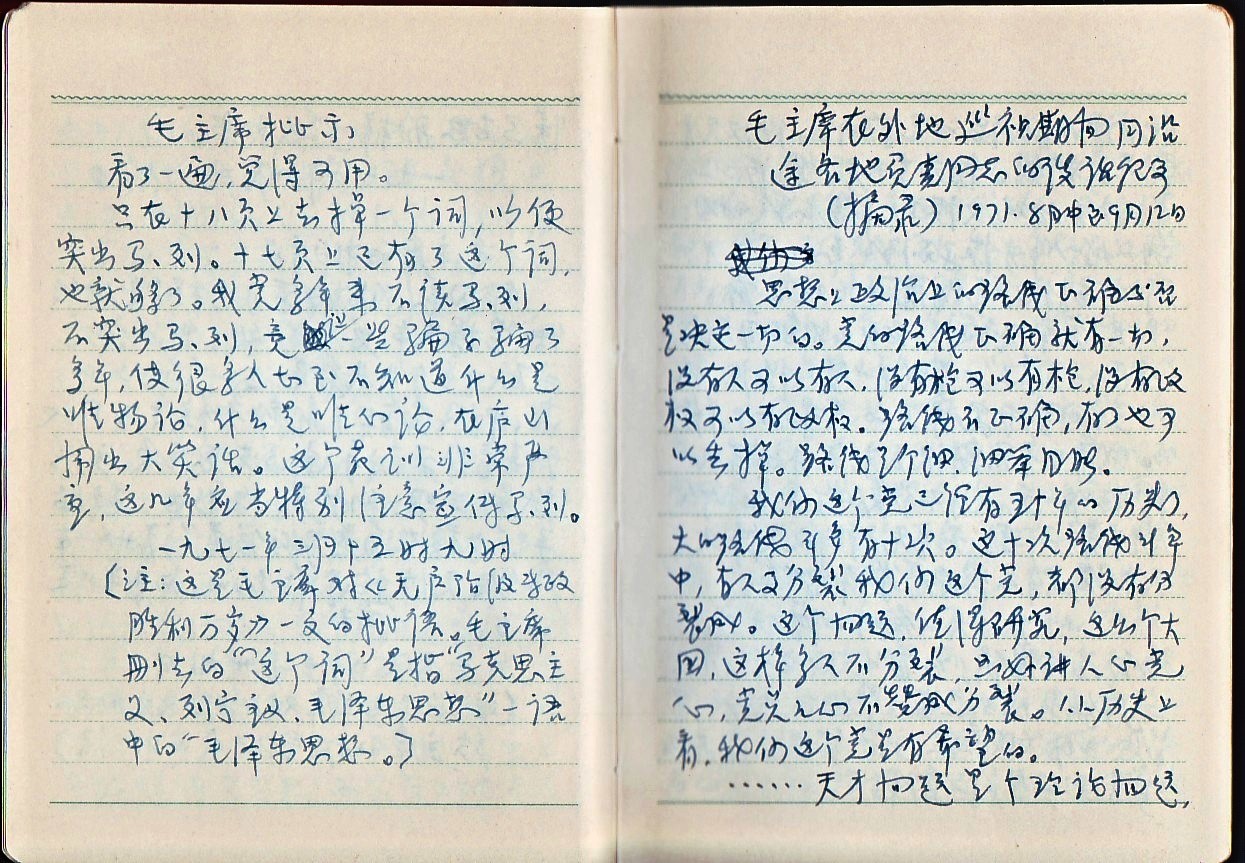 毛主席批示
看了一遍,觉得可用。
只在十八页上去掉一个词,以便
突出马、列。十七页上已有了这个词,
也就够了。我党多年来不读马、列,
不突出马、列,竟让一些骗子骗了
多年,使很多人甚至不知道什么是
唯物论,什么是唯心论,在庐山
闹出大笑话。这个教训非常严
重,这几年应当特别注意宣传马、列。
一九七一年三月十五时九时
(注:这是毛主席对《无产阶级专政
胜利万岁》一文的批语。毛主席
删去的“这个词”是指“马克思主
义、列宁主义、毛泽东思想”一语
中的“毛泽东思想。)
毛主席在外地巡视期间同沿
途各地负责同志的谈话纪要
(摘录) 1971.8月中至9月12日
思想上政治上的路线正确与否
是决定一切的。党的路线正确就有一切,
没有人可以有人,没有枪可以有枪,没有政
权可以有政权。路线不正确,有了也可
以丢掉。路线是个纲,纲举目张。
我们这个党已经有五十年的历史了,
大的路线斗争有十次。这十次路线斗争
中,有人要分裂我们这个党,都没有分
裂成。这个问题,值得研究,这么个大
国,这样多人不分裂,只好讲人心党
心,党员之心不赞成分裂。从历史上
看,我们这个党是有希望的。
……天才问题是个理论问题,